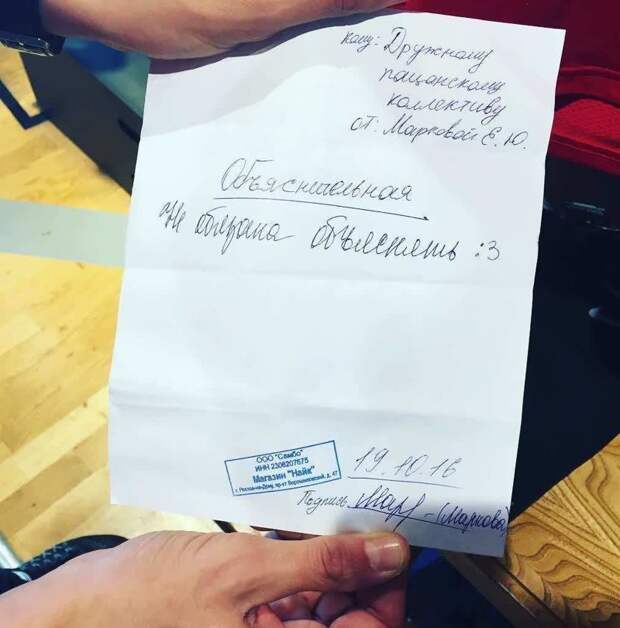 кому: Дружному
пацанскому
коллективу
от: Марковой Е. Ю.
Объяснительная
Не обязана объяснять :3
ООО "Самбо"
ИНН 2308207675
Магазин "Найк"
г. Ростов-на-Дону, пр-кт Ворошиловский, д. 47
19.10.16
Подпись Марк - (Маркова)